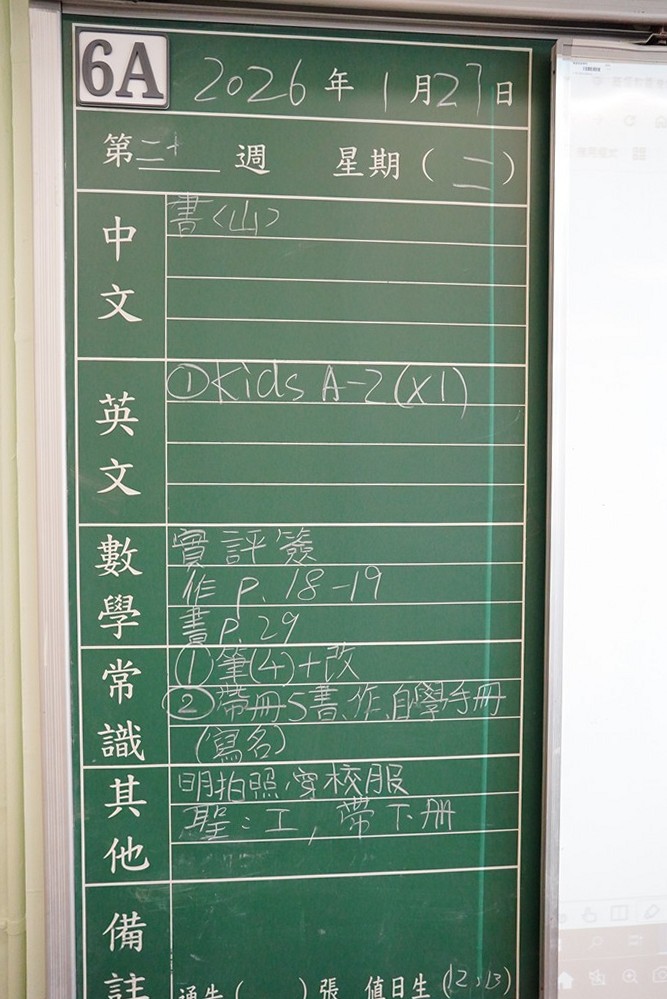 6A 2026年1月27日
第二十週 星期(二)
中文
書<山>
英文
①Kids A-Z(x1)
數學
實評簽
作 p. 18-19
書 p. 29
常識
①筆(4)+改
②帶冊5書、作、自學手冊
(寫名)
其他
明拍照,穿校服
聖:工,帶下冊
備註
通告( )張 值日生(12,13)